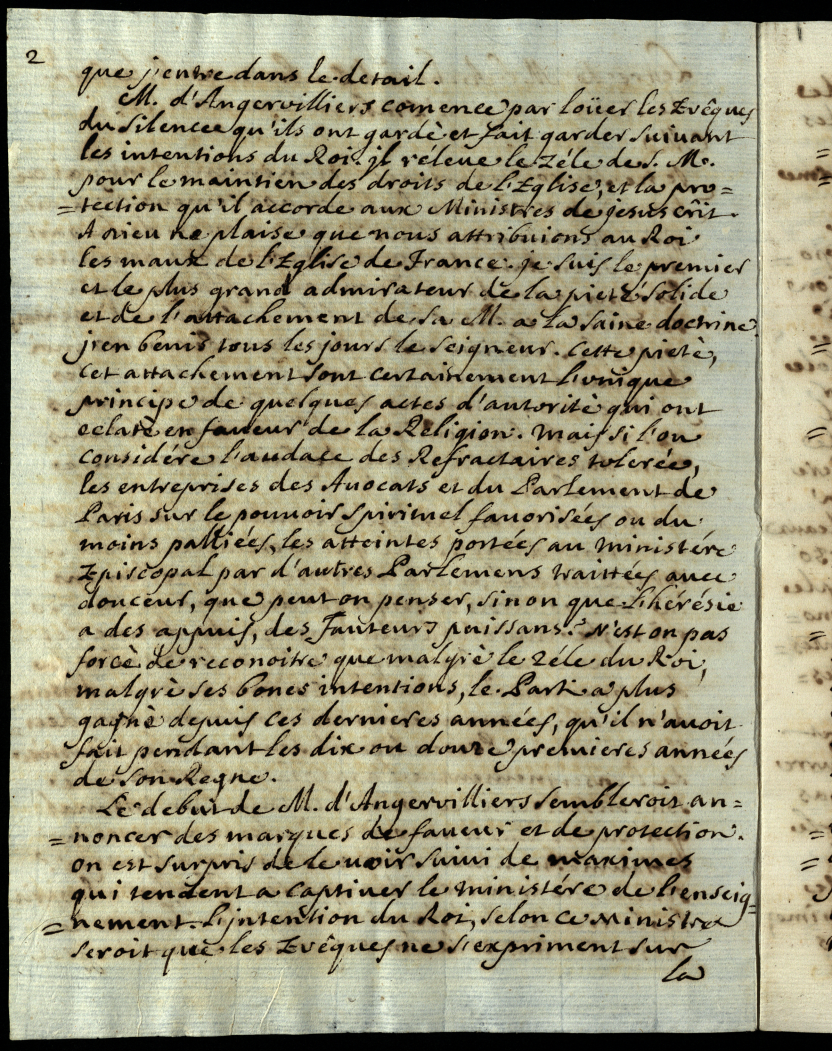 2
que j'entre dans le detail.
M. d'Angervilliers comence par loüer les Evêques
du silence qu'ils ont gardè et fait garder suivant
les intentions du Roi. jl réleve le zéle de S. M.
pour le maintien des droits de l'Eglise, et la pro=
=tection qu'il accorde aux Ministres de jesus crît.
A Dieu ne plaise que nous attribuions au Roi
les maux de l'Eglise de France. je suis le premier
et le plus grand admirateur de la pieté solide
et de l'attachement de Sa M. a la saine doctrine.
j'en benis tous les jours le seigneur. Cette pietè,
cet attachement sont certainement l'unique
principe de quelques actes d'autoritè qui ont
eclatè en faveur de la Religion. Mais si l'on
considére l'audace des Refractaires tolerée,
les entreprises des Avocats et du Parlement de
Paris sur le pouvoir spirituel favorisées ou du
moins palliées, les atteintes portées au ministére
Episcopal par d'autres Parlemens traittées avec
douceur, que peut on penser, sinon que l'hérésie
a des appuis, des Fauteurs puissans? N'est on pas
forcè de reconoitre que malgrè le zéle du Roi,
malgrè ses bones intentions, le Parti a plus
gagnè depuis ces dernieres années, qu'il n'avoit
fait pendant les dix ou douze premieres années
de son Regne.
Le debut de M. d'Angervilliers sembleroit an=
=noncer des marques de faveur et de protection.
on est surpris de le voir suivi de maximes
qui tendent a captiver le ministére de l'enseig=
=nement. L'jntention du Roi, selon ce Ministre
seroit que les Evêques ne s'expriment sur
la